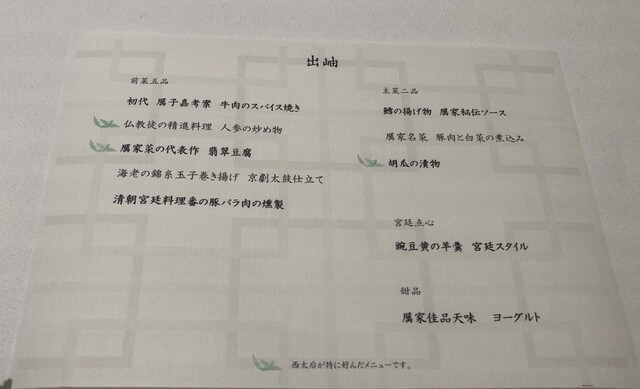 出岫
前菜五品
初代 厲子嘉考案 牛肉のスパイス焼き
仏教徒の精進料理 人参の炒め物
厲家菜の代表作 翡翠豆腐
海老の錦糸玉子巻き揚げ 京劇太鼓仕立て
清朝宮廷料理番の豚バラ肉の燻製
主菜二品
鱈の揚げ物 厲家秘伝ソース
厲家名菜 豚肉と白菜の煮込み
胡瓜の漬物
宮廷点心
豌豆黄の羊羹 宮廷スタイル
甜品
厲家佳品天味 ヨーグルト
西太后が特に好んだメニューです。